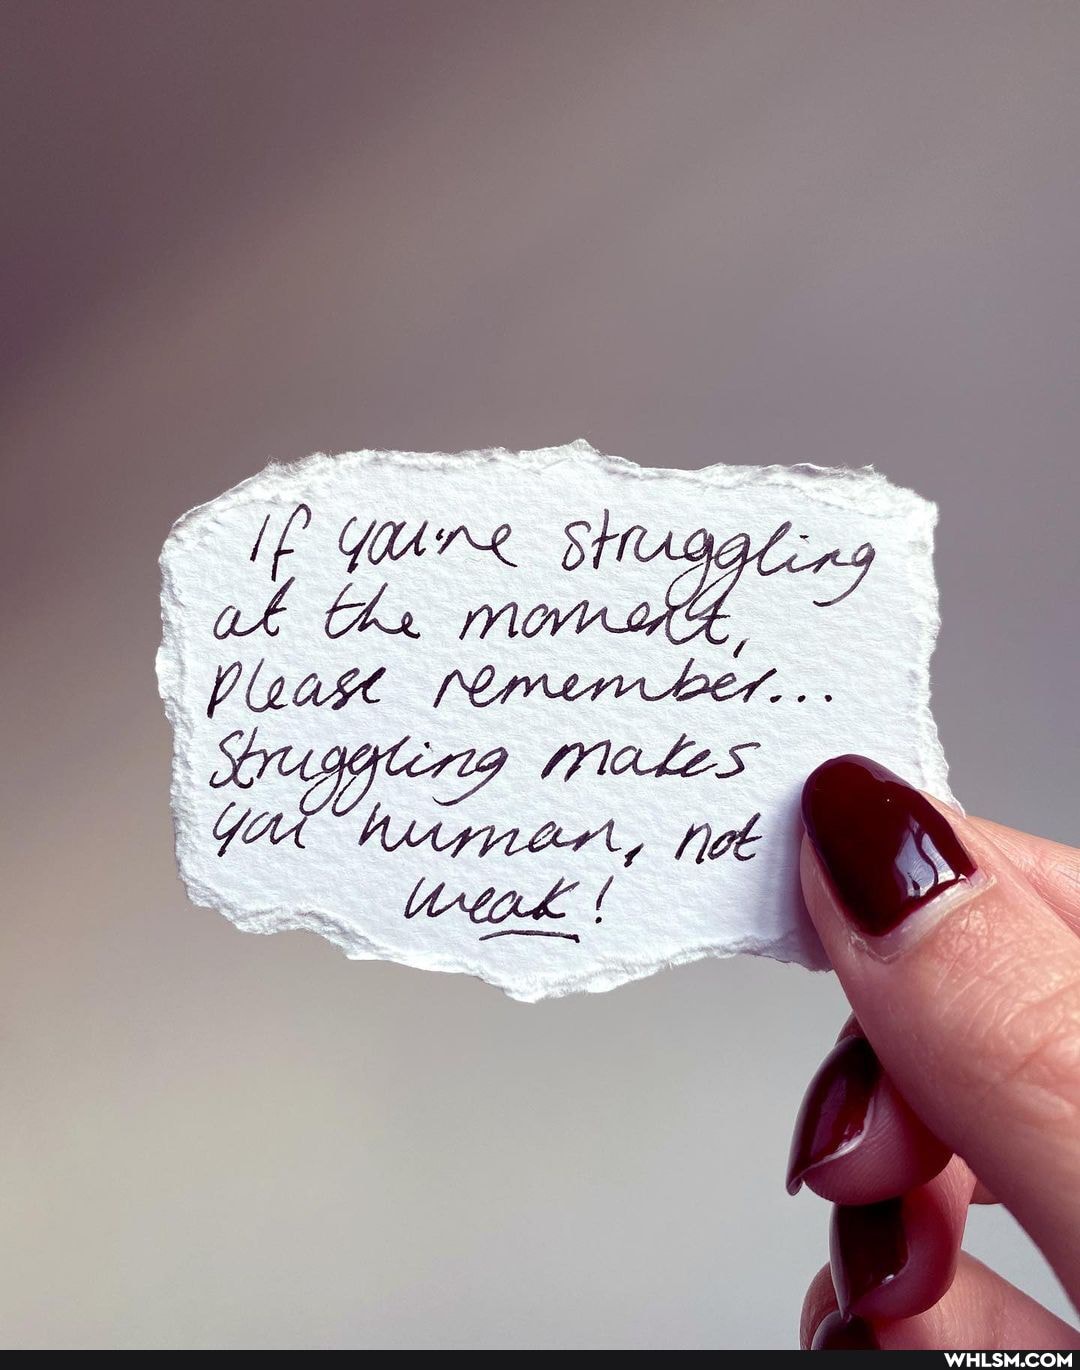 If you're struggling
at the moment,
please remember...
Struggling makes
you human, not
weak!
WHLSM.COM